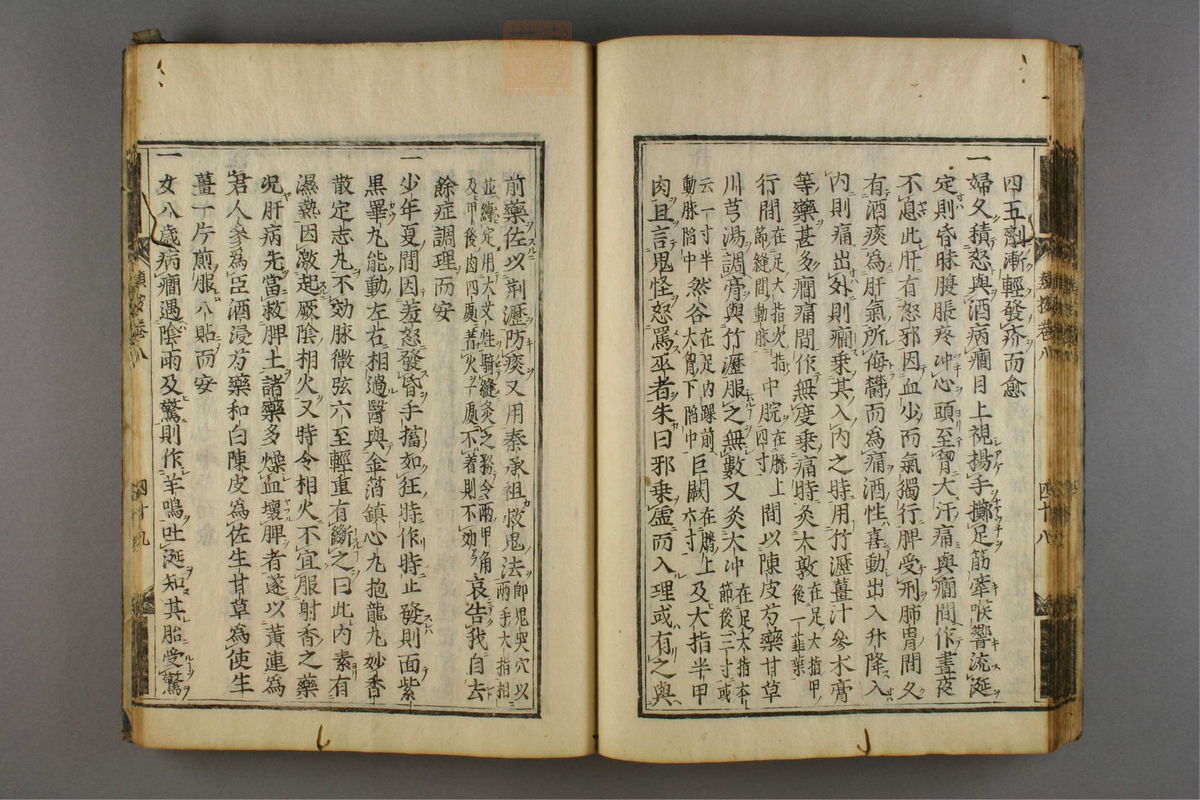 四五劑漸輕發疥而愈
一婦久積怒與酒病癇目上視揚手擲足筋牽喉響流涎
定則昏昧腹脹疼冲心頭至胷大汗痛與癇間作晝夜
不息此肝有怒邪因血少而氣獨行脾受刑肺胃間久
有酒痰為肝氣所侮鬱而為痛酒性喜動出入升降入
內則痛出外則癇乘其入內之時用竹瀝薑汁參朮膏
等藥甚多癇痛間作無度乘痛時灸大敦在足大指甲後一韮葉
行間在足大指次指節縫間動脉中脘在臍上四寸間以陳皮芍藥甘草
川芎湯調膏與竹瀝服之無數又灸太冲在足大指本節後二寸或
云一寸半動脉陷中然谷在足內踝前大骨下陷中巨闕在臍上六寸及大指半甲
肉且言鬼怪怒罵巫者朱曰邪乘虛而入理或有之與
前藥佐以荆瀝防痰又用秦承祖救鬼法即鬼哭穴以兩手大指相
並縳定用大艾炷騎縫灸之務令兩甲角及甲後肉四處着火一處不着則不効哀告我自去
餘症調理而安
一少年夏間因羞怒發昏手搐如狂時作時止發則面紫
黑睾丸能動左右相過醫與金箔鎮心丸抱龍丸妙香
散定志丸不効脉微弦六至輕重有斷之曰此內素有
濕熱因激起厥陰相火又時令相火不宜服射香之藥
况肝病先當救脾土諸藥多燥血壞脾者遂以黄連為
君人參為臣酒浸芍藥和白陳皮為佐生甘草為使生
薑一片煎服八貼而安
一女八歲病癇遇陰雨及驚則作羊鳴吐涎知其胎受驚
類案卷八
四十八
四十九